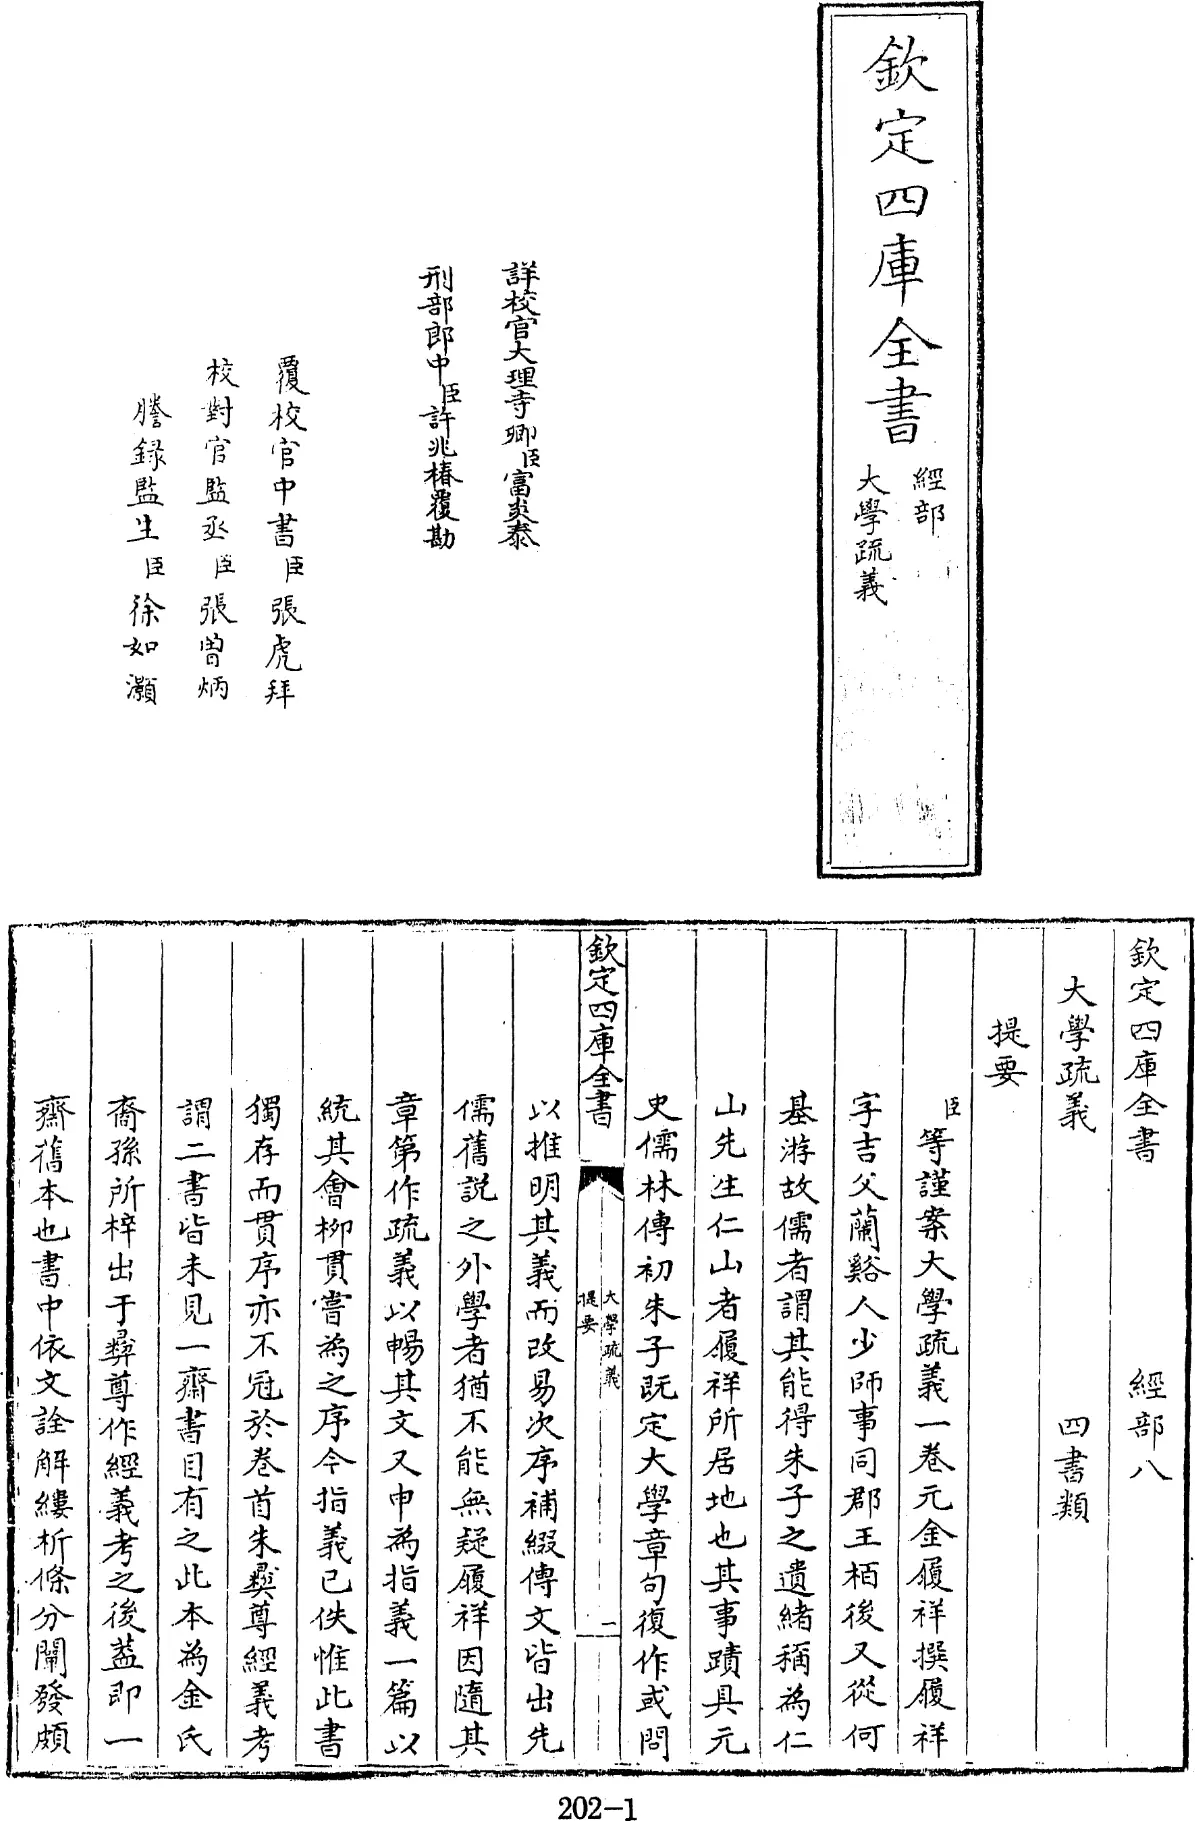 欽定四庫全書
經部
大學疏義
詳校官大理寺卿臣富炎泰
刑部郎中臣許兆椿覆勘
覆校官中書臣張虎拜
校對官監丞臣張曾炳
謄錄監生臣徐如灝
欽定四庫全書 經部八
大學疏義 四書類
提要
臣等謹案大學疏義一卷元金履祥撰履祥
字吉父蘭谿人少師事同郡王栢後又從何
基游故儒者謂其能得朱子之遺緒稱為仁
山先生仁山者履祥所居地也其事蹟具元
史儒林傳初朱子既定大學章句復作或問
欽定四庫全書
大學疏義
提要
一
以推明其義而改易次序補綴傳文皆出先
儒舊説之外學者猶不能無疑履祥因隨其
章第作疏義以暢其文又申為指義一篇以
統其會柳貫嘗為之序今指義已佚惟此書
獨存而貫序亦不冠於卷首朱彝尊經義考
謂二書皆未見一齋書目有之此本為金氏
裔孫所梓出于彝尊作經義考之後葢即一
齋舊本也書中依文詮解縷析條分闡發頗
202-1